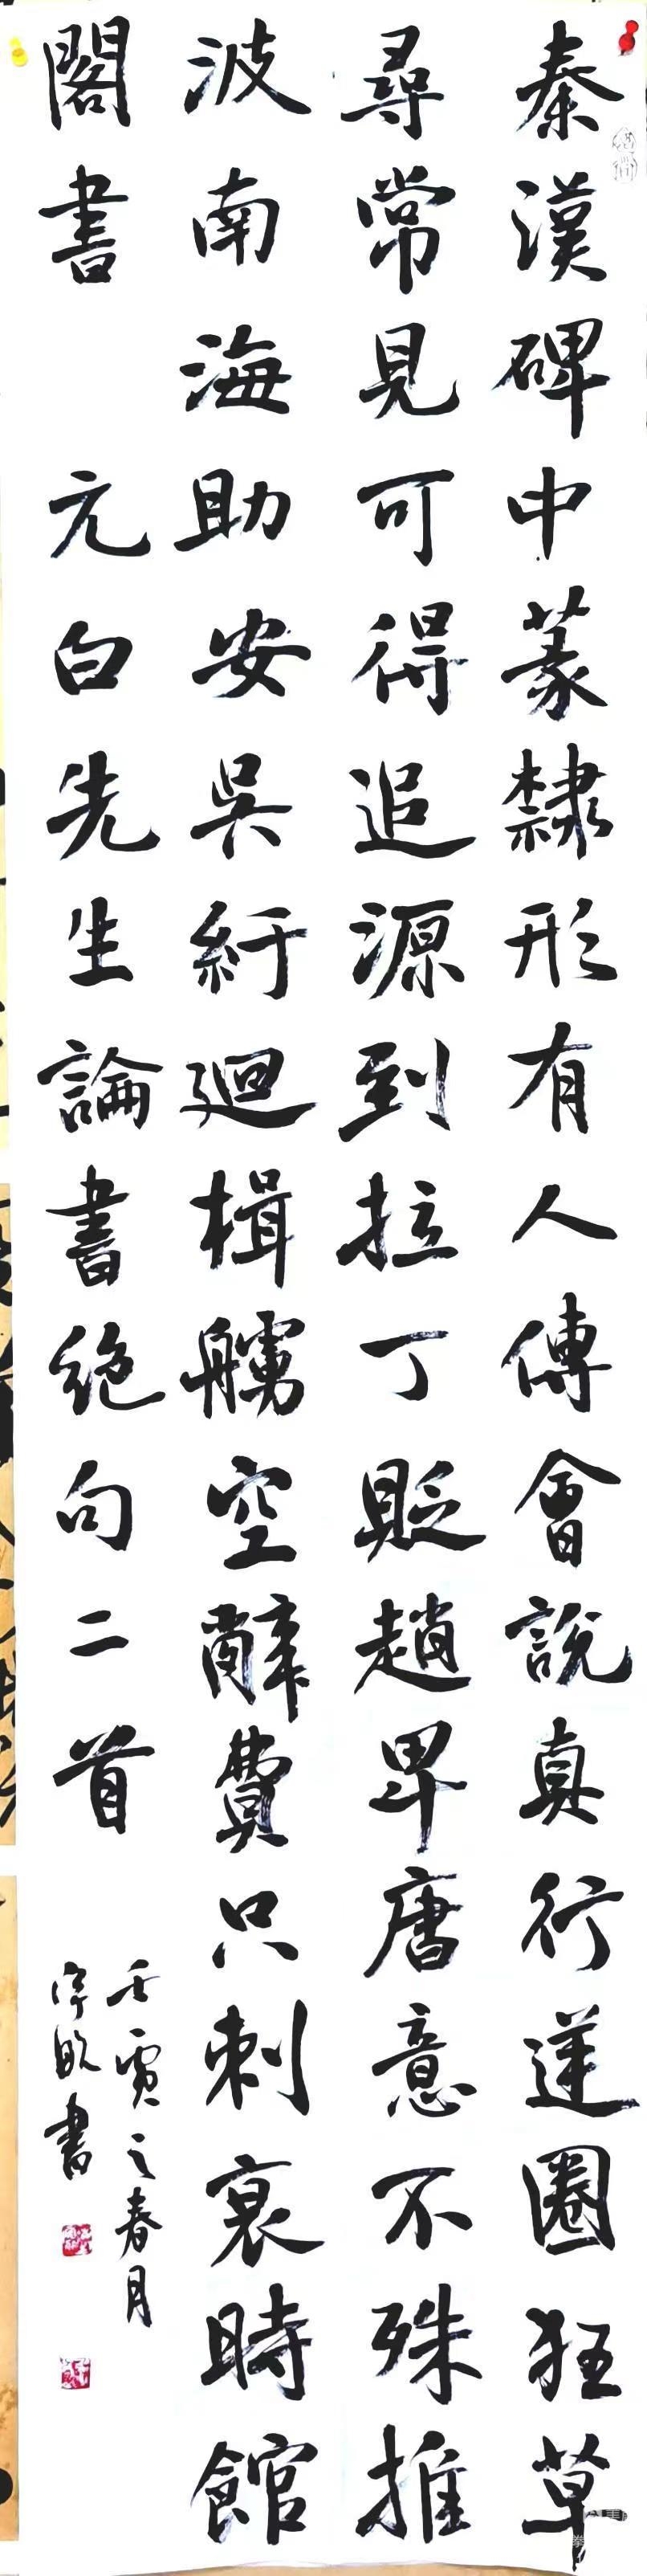 秦漢碑中篆隸形有人傅會說真行逆圈狂草
尋常見可得追源到拉丁貶趙卑唐意不殊推
波南海助安吳紆迴楫艣空辭費只刺衰時館
閣書 元白先生論書絕句二首
壬寅之春月
書